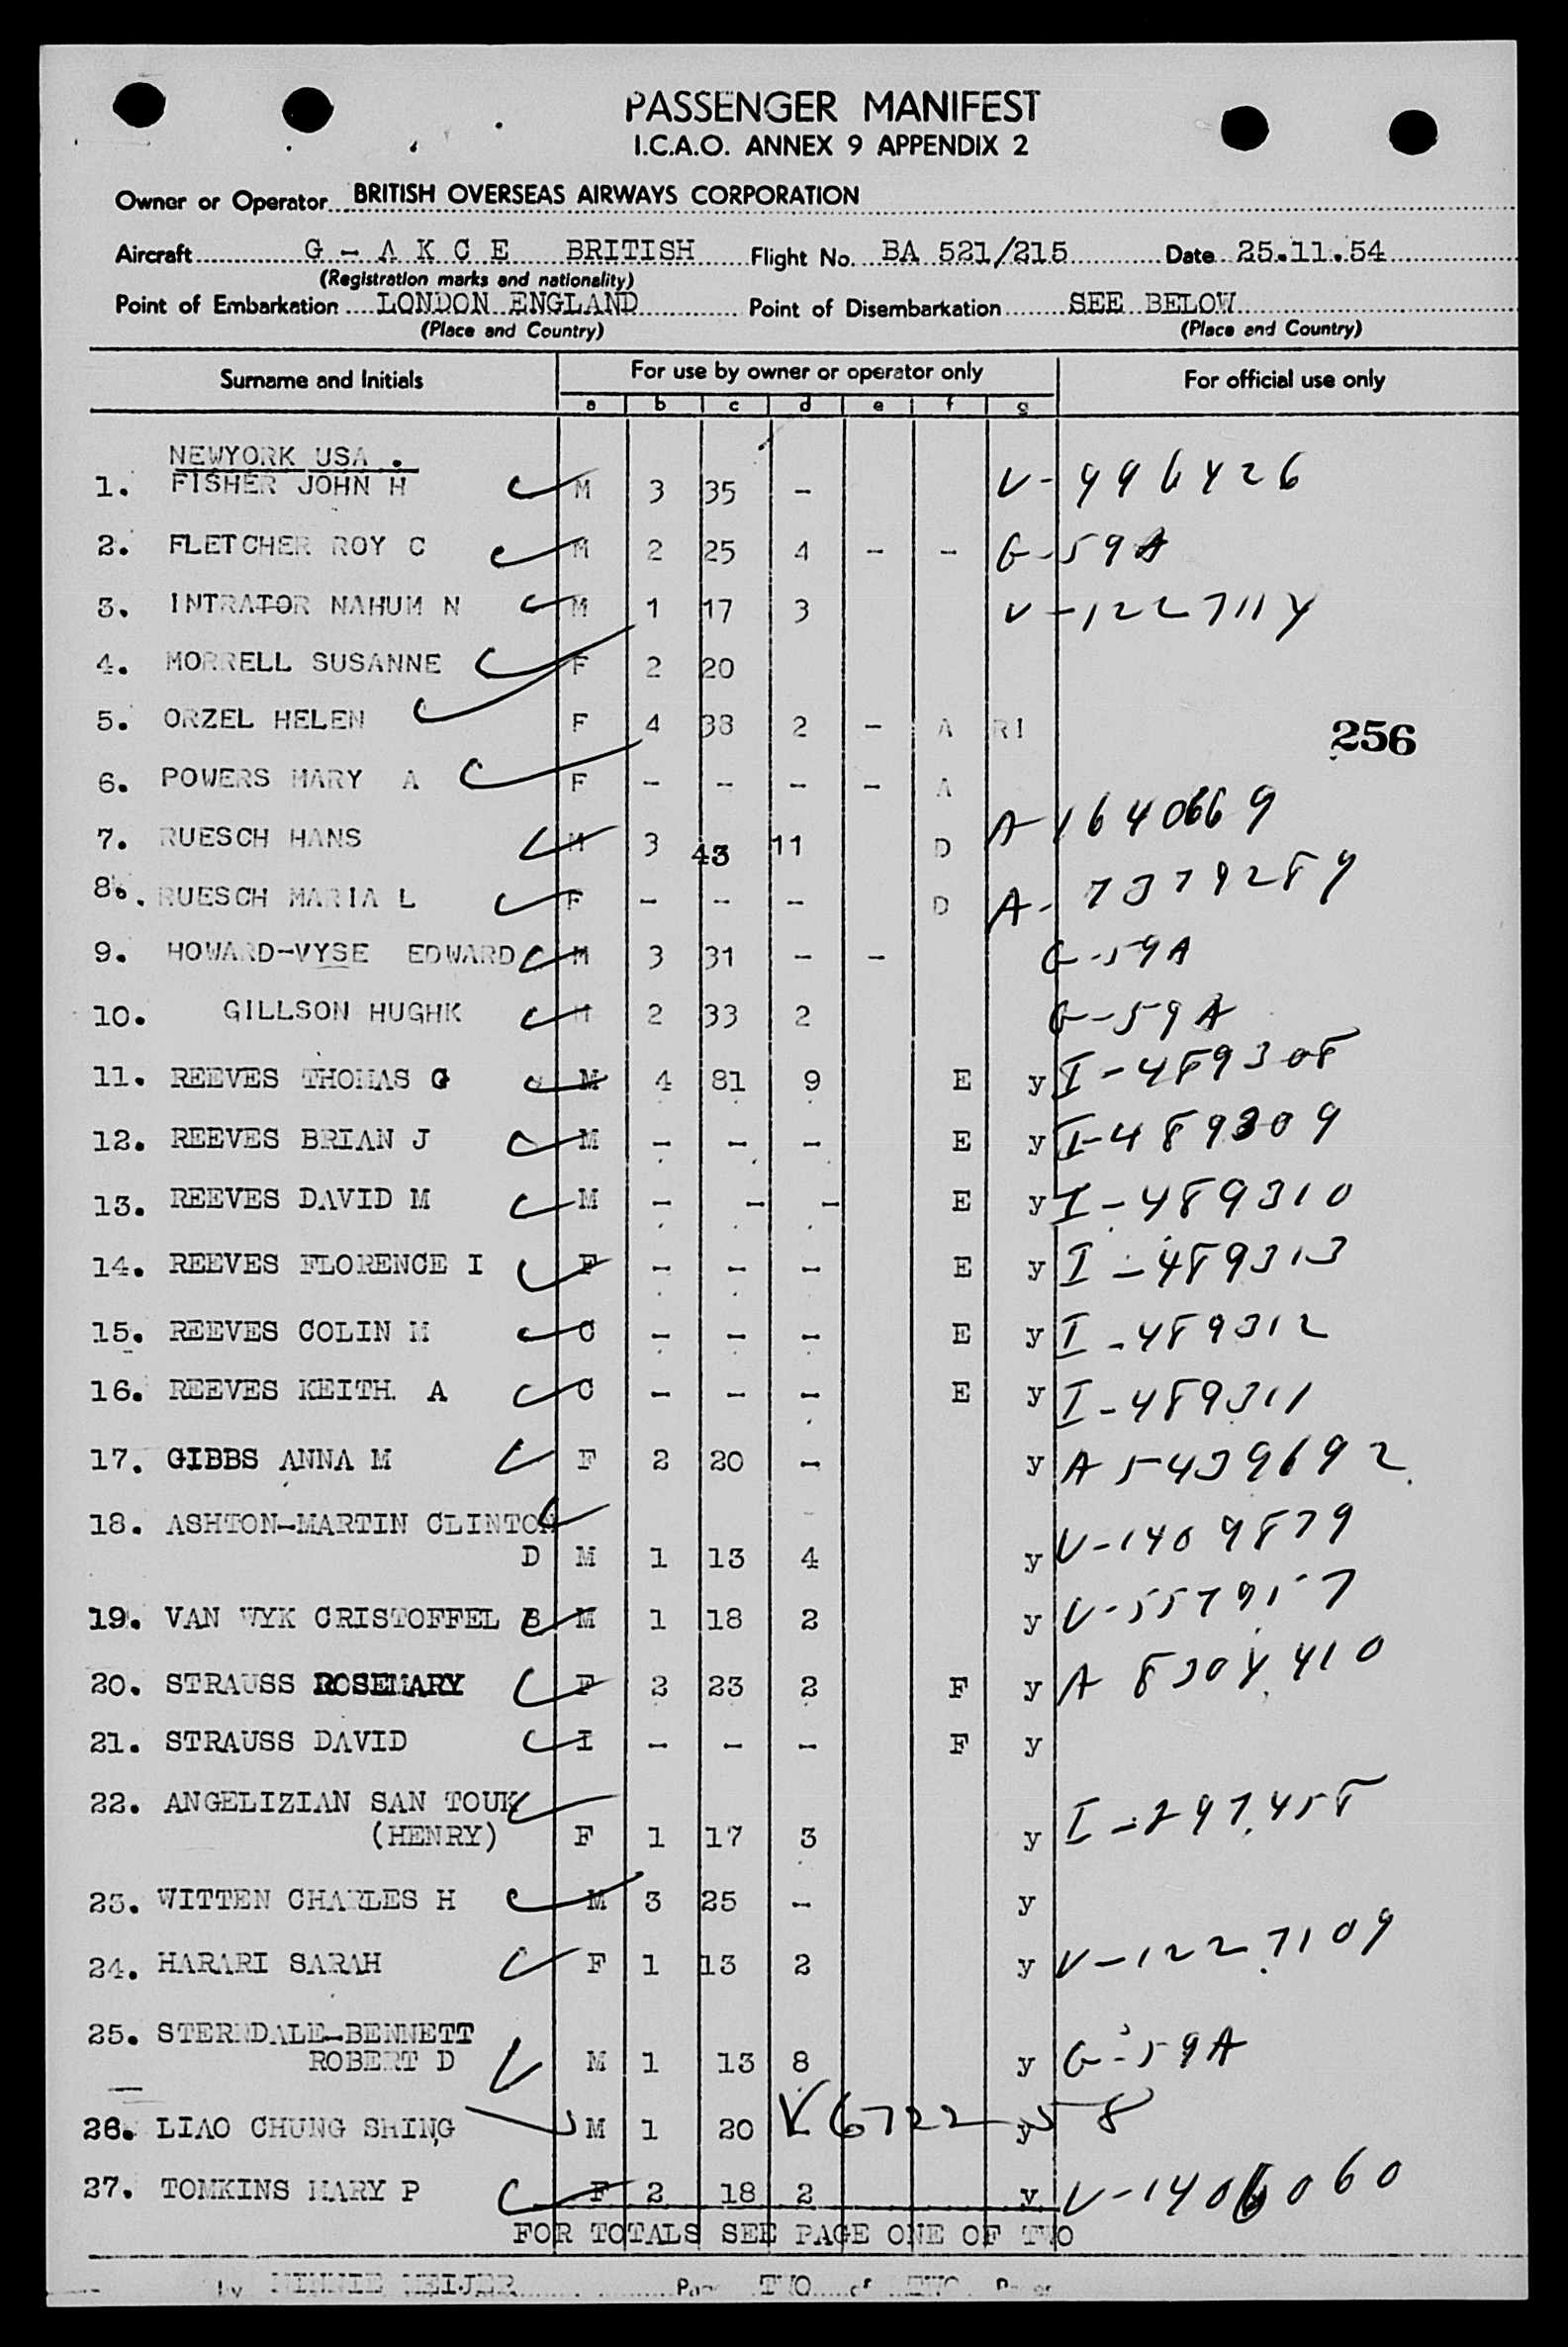 PASSENGER MANIFEST
I.C.A.O. ANNEX 9 APPENDIX 2
Owner or Operator BRITISH OVERSEAS AIRWAYS CORPORATION
Aircraft G - A K C E BRITISH Flight No. BA 521/215 Date 25.11.54
(Registration marks and nationality)
Point of Embarkation LONDON ENGLAND Point of Disembarkation SEE BELOW
(Place and Country) (Place and Country)
Surname and Initials For use by owner or operator only For official use only
a b c d e f g
NEWYORK USA .
1. FISHER JOHN H M 3 35 - V-996426
2. FLETCHER ROY C M 2 25 4 - - G-59A
3. INTRATOR NAHUM N M 1 17 3 V-1227114
4. MORRELL SUSANNE F 2 20
5. ORZEL HELEN F 4 38 2 - A RI
256
6. POWERS MARY A F - - - - A
7. RUESCH HANS M 3 43 11 D A-1640669
8. RUESCH MARIA L F - - - D A-7379289
9. HOWARD-VYSE EDWARD M 3 31 - - G-59A
10. GILLSON HUGHK M 2 33 2 G-59A
11. REEVES THOMAS G M 4 81 9 E y I-489308
12. REEVES BRIAN J M - - - E y I-489309
13. REEVES DAVID M M - - - E y I-489310
14. REEVES FLORENCE I F - - - E y I-489313
15. REEVES COLIN M C - - - E y I-489312
16. REEVES KEITH. A C - - - E y I-489311
17. GIBBS ANNA M F 2 20 - y A 5439692
18. ASHTON-MARTIN CLINTON
D M 1 13 4 y V-1409879
19. VAN WYK CRISTOFFEL B M 1 18 2 y V-557957
20. STRAUSS ROSEMARY F 2 23 2 F y A 8304410
21. STRAUSS DAVID I - - - F y
22. ANGELIZIAN SAN TOUK
(HENRY) F 1 17 3 y I-297458
23. WITTEN CHARLES H M 3 25 - y
24. HARARI SARAH F 1 13 2 y V-1227109
25. STERNDALE-BENNETT
ROBERT D M 1 13 8 y G-59A
26. LIAO CHUNG SHING M 1 20 - y V672258
27. TOMKINS MARY P F 2 18 2 y V-1406060
FOR TOTALS SEE PAGE ONE OF TWO
by MINNIE MEIJER Page TWO of TWO Pages